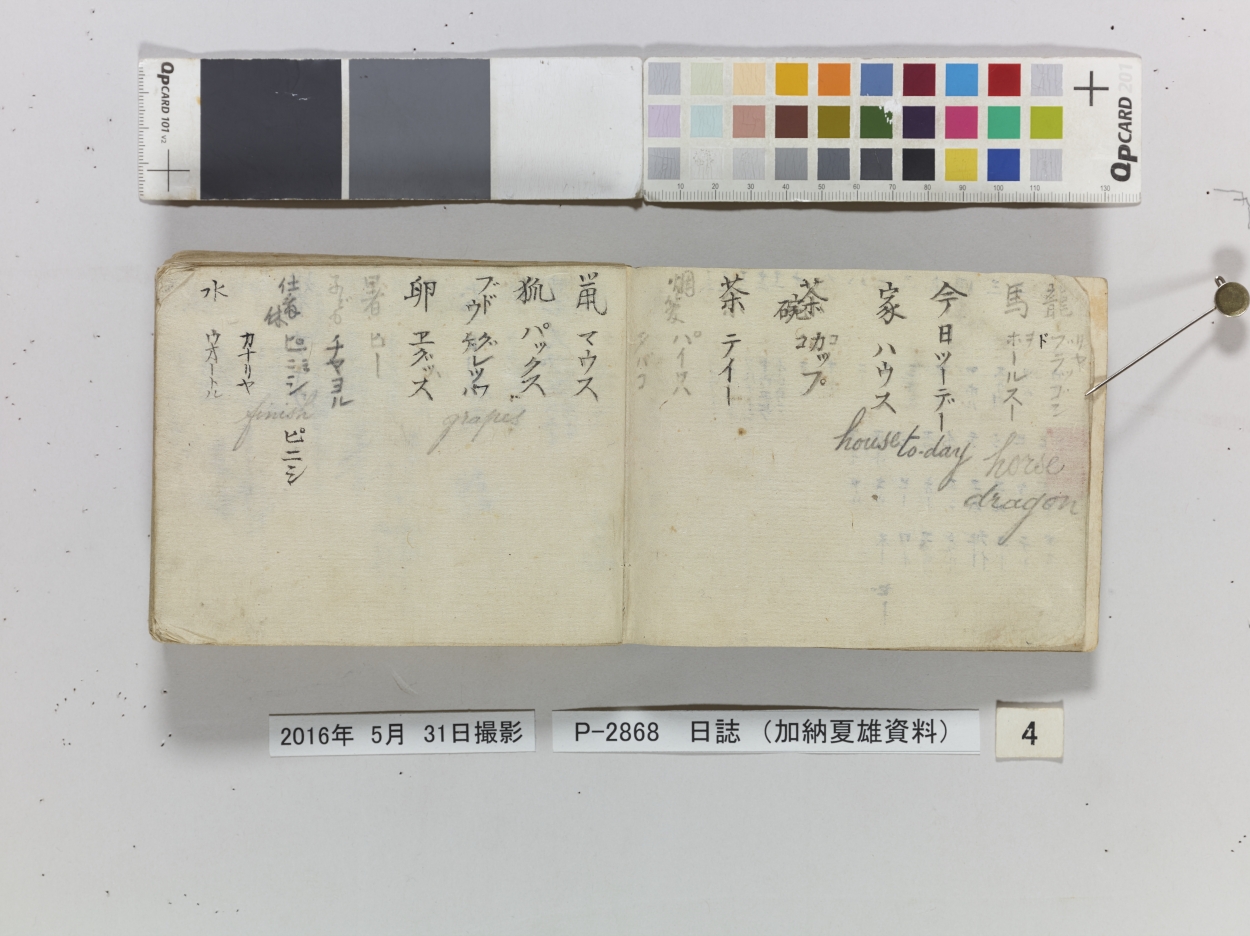 QPCARD 101 v2
10 20 30 40 50 60 70 80 90 100 110 130
QPCARD 201
龍
ド
馬 ホールスー horse
dragon
今日 ツーデー to-day
家 ハウス house
茶碗 カップ
コ コ
茶 テイー
パイプス
タバコ
鼠 マウス
狐 パックス
ブドウ グレップ grapes
卵 エグッス
ヒー
子ども チヤヨル
仕 休 ピニシ ピニシ finish
カナリヤ
水 ウオートル
2016年 5月 31日撮影
P-2868 日誌 （加納夏雄資料）
4